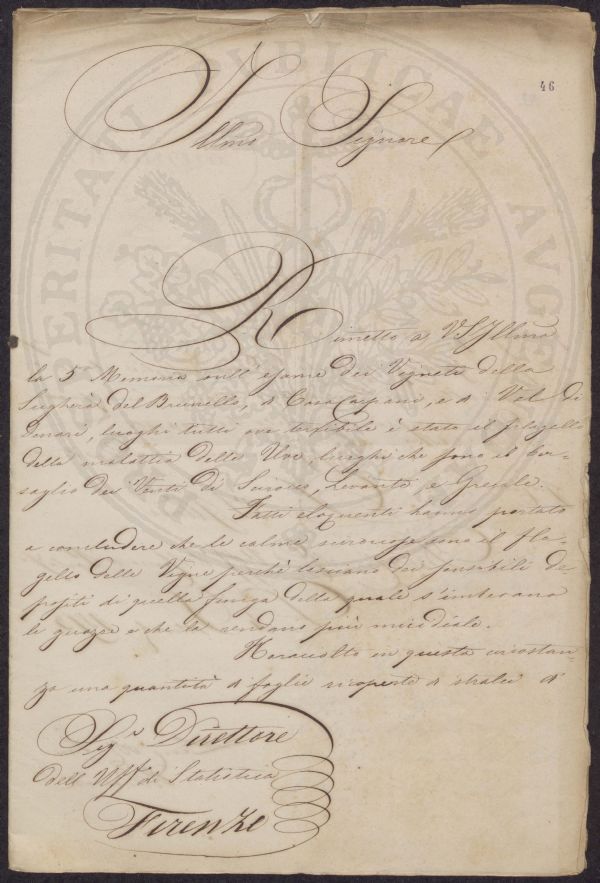 46
Illmo Signore
Rimetto a VS Illma
la 5ª Memoria sull' esame dei Vigneti della
Sughera del Brunello, a Casa, e a Val di
luoghi tutti ove terribile è stato il flagello
della malattia delle Uve, luoghi che sono il ber-
saglio dei Venti di Scirocco, Levante, e Grecale.
Fatti eloquenti hanno portato
a concludere che le calme sono il fla-
gello delle Vigne perchè lasciano dei sensibili de-
positi di quella della quale s'imbevano
le guazze e che la rendano più micidiale.
Ho raccolto in questa circostan-
za una quantità di foglie ricoperte a di
Sigr Direttore
dell' Uff di Statistica
Firenze
PROSPERITATI PVBLICAE AVGENDAE